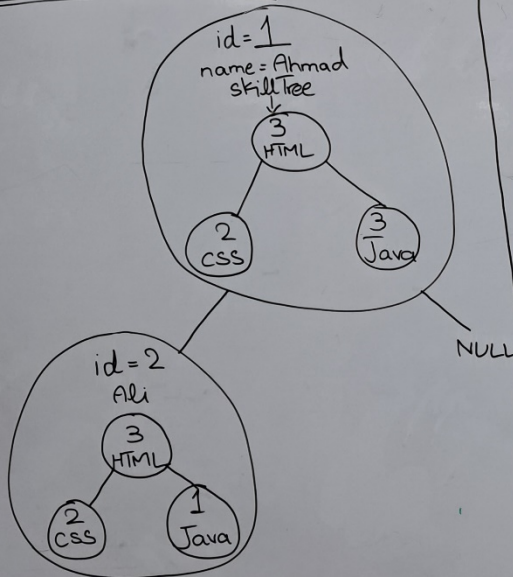 id=1
name=Ahmad
skillTree
3
HTML
2
CSS
3
Java
NULL
id=2
Ali
3
HTML
2
CSS
1
Java